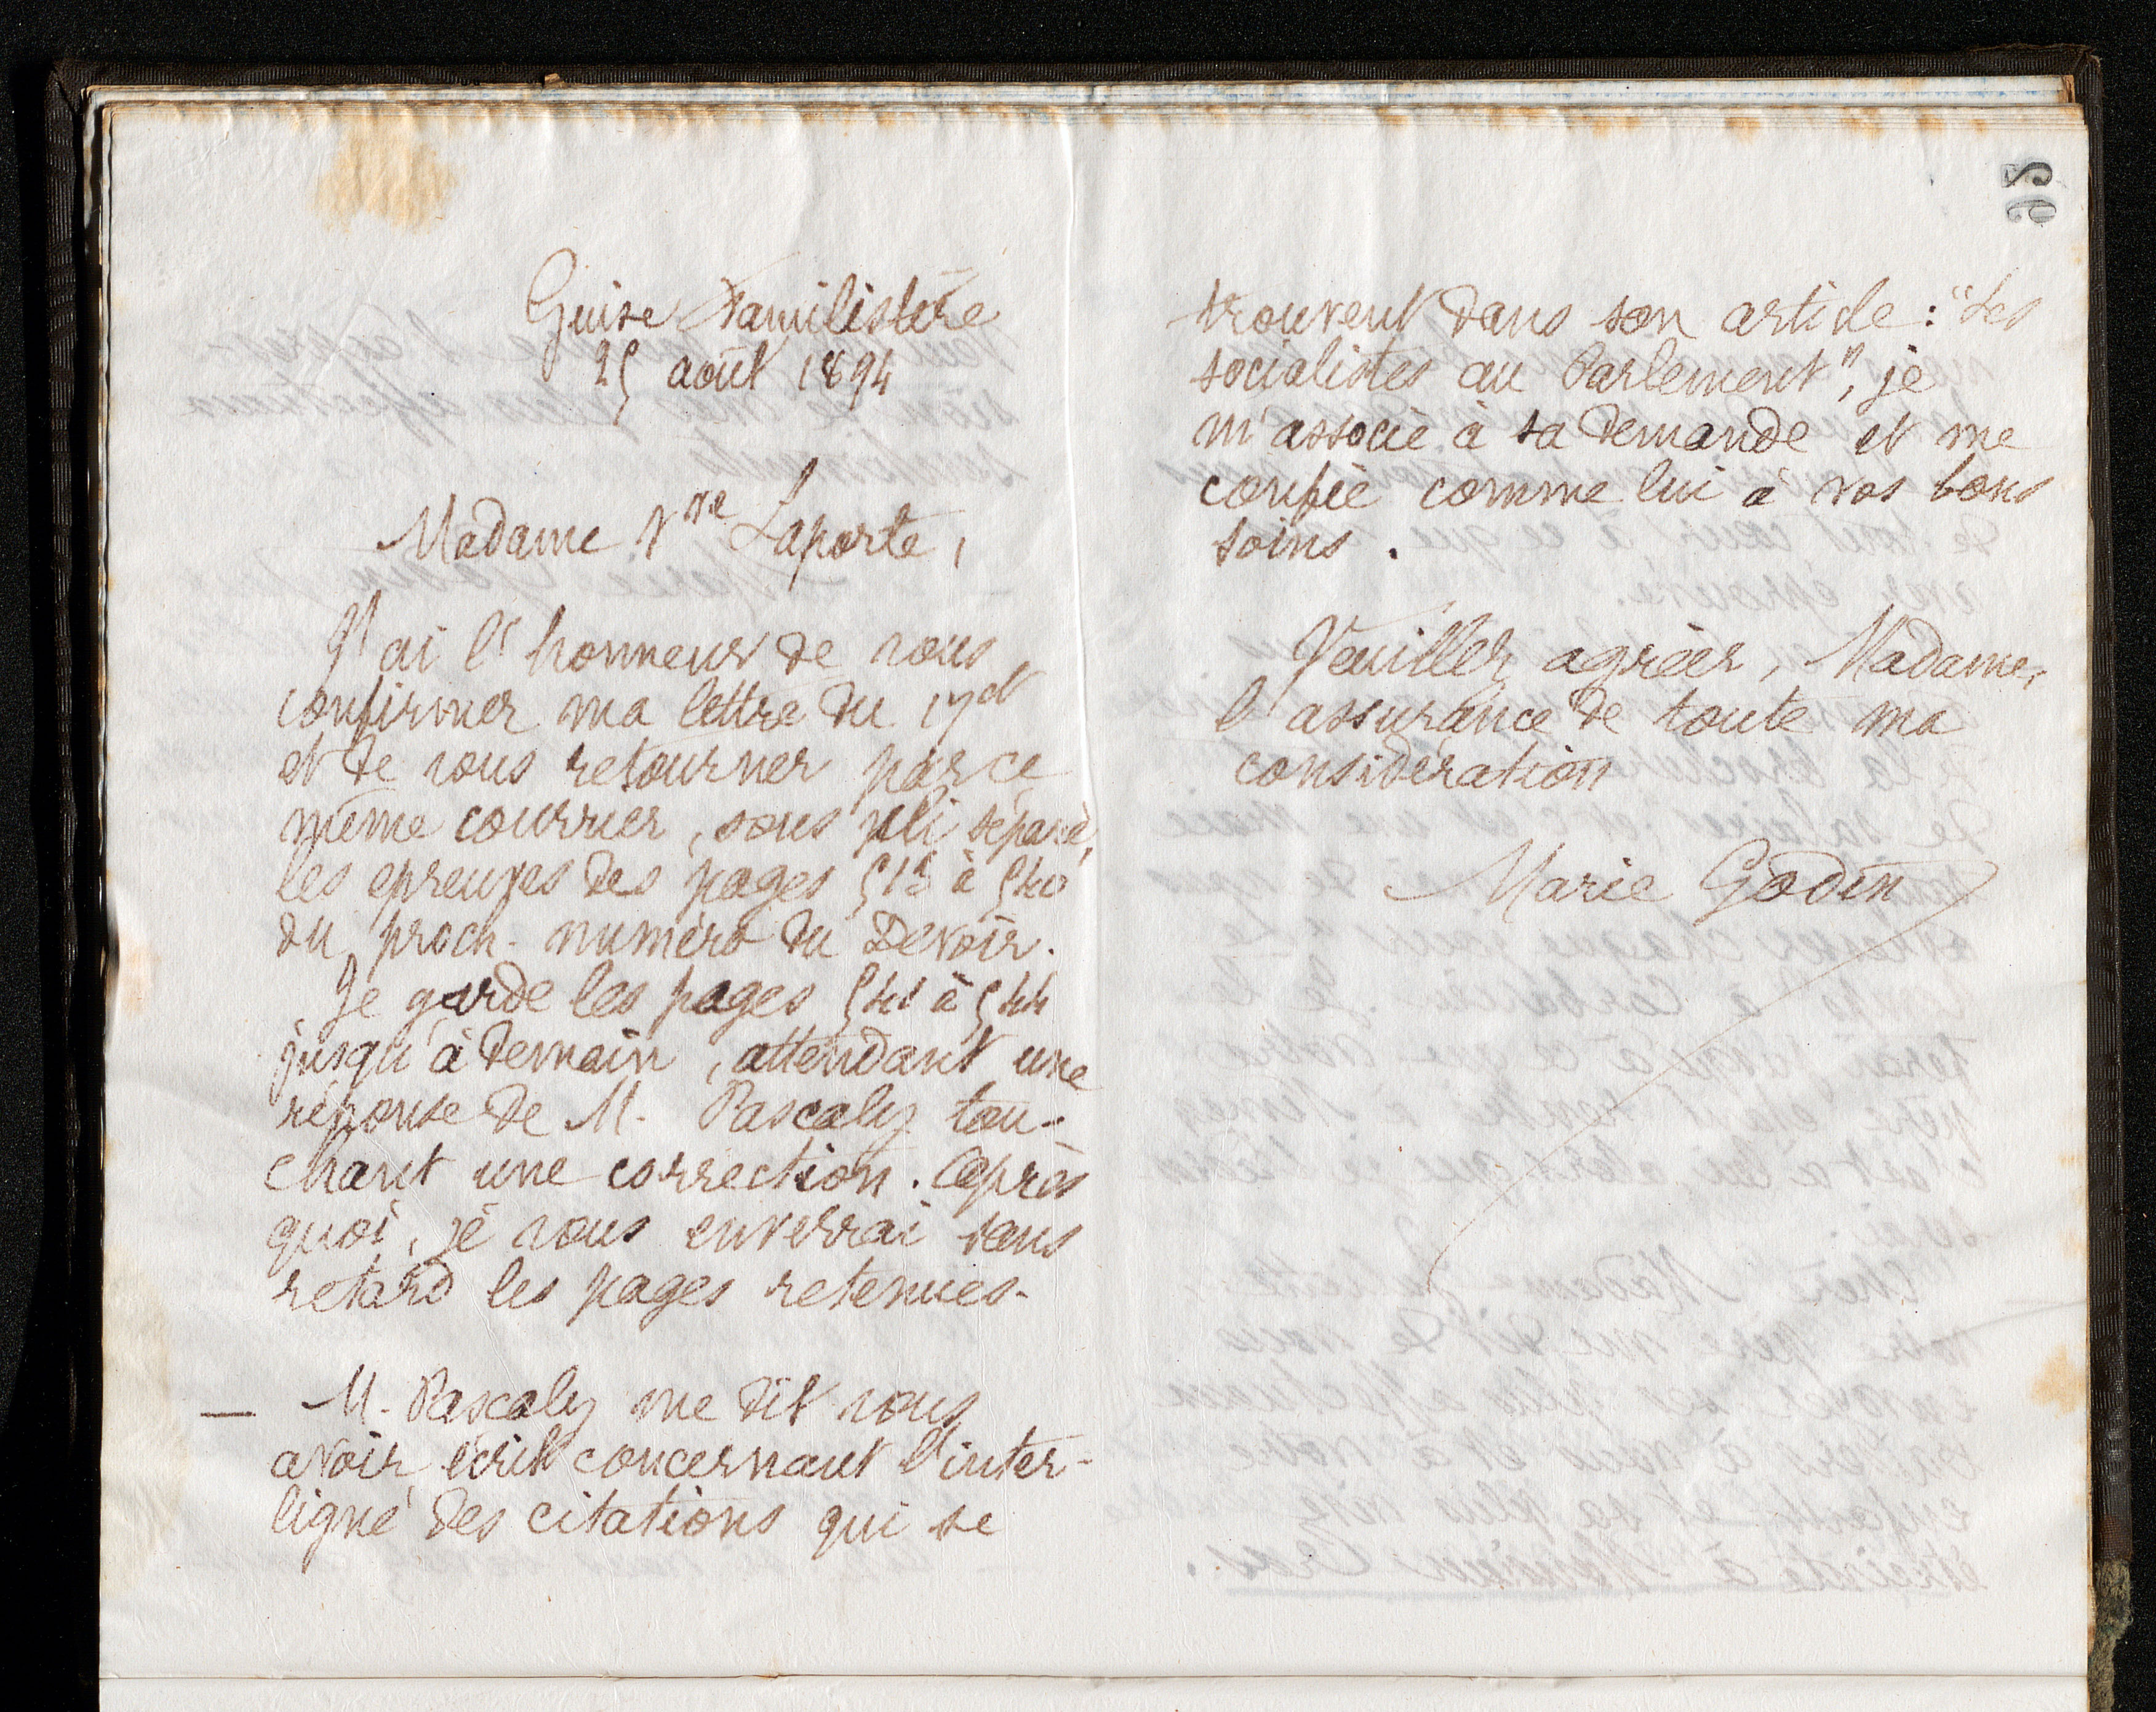 Guise Familistère
25 août 1894
Madame Vve Laporte,
J'ai l'honneur de vous
confirmer ma lettre du 17 ct
et de vous retourner par ce
même courrier, sous pli séparé,
les epreuves des pages 513 à 540
du proch. numéro du Devoir.
Je garde les pages 541 à 544
jusqu'à demain, attendant une
réponse de M. Pascaly tou-
chant une correction. Après
quoi, je vous enverrai sans
retard les pages retenues.
— M. Pascaly me dit vous
avoir écrit concernant l'inter-
ligne des citations qui se
98
trouvent dans son article : "Les
socialistes au Parlement", je
m'associe à sa demande et me
confie comme lui à vos bons
soins.
Veuillez agréer, Madame,
l'assurance de toute ma
considération
Marie Godin